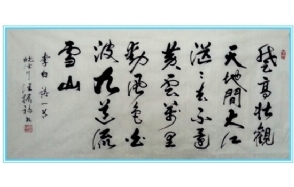 登高壮觀
天地間大江
茫茫去不還
黄雲萬里
動風色白
波九道流
雪山
李白詩一首